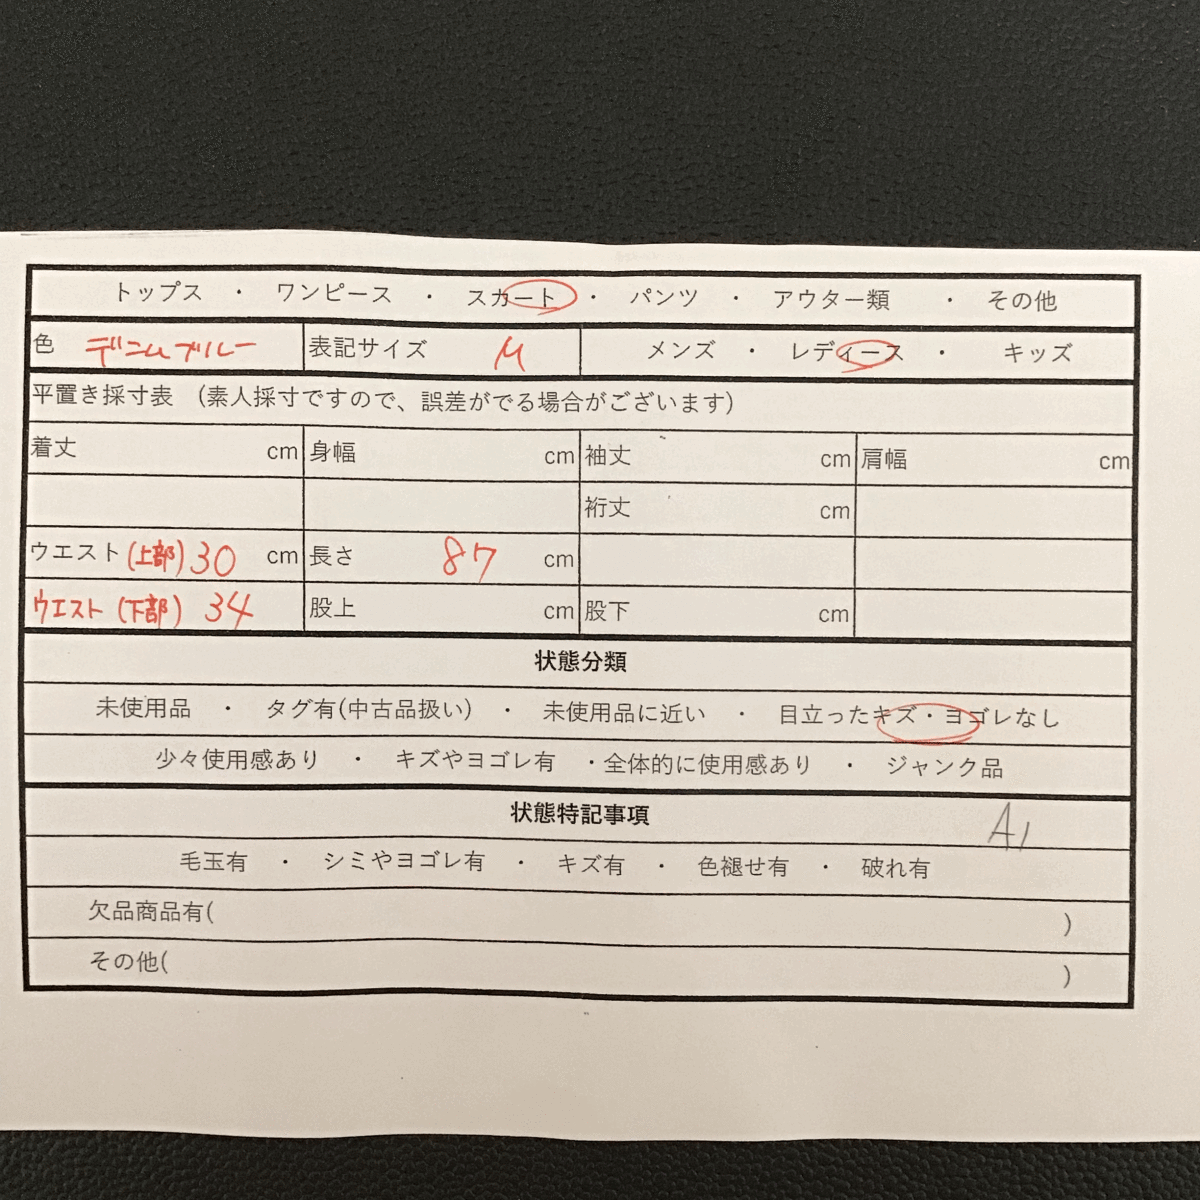 トップス ・ ワンピース ・ スカート ・ パンツ ・ アウター類 ・ その他
色 デニムブルー 表記サイズ M メンズ ・ レディース ・ キッズ
平置き採寸表 (素人採寸ですので、誤差がでる場合がございます)
着丈 cm 身幅 cm 袖丈 cm 肩幅 cm
裄丈 cm
ウエスト(上部)30 cm 長さ 87 cm
ウエスト(下部) 34 股上 cm 股下 cm
状態分類
未使用品 ・ タグ有(中古品扱い) ・ 未使用品に近い ・ 目立ったキズ・ヨゴレなし
少々使用感あり ・ キズやヨゴレ有 ・全体的に使用感あり ・ ジャンク品
状態特記事項 A1
毛玉有 ・ シミやヨゴレ有 ・ キズ有 ・ 色褪せ有 ・ 破れ有
欠品商品有( )
その他( )